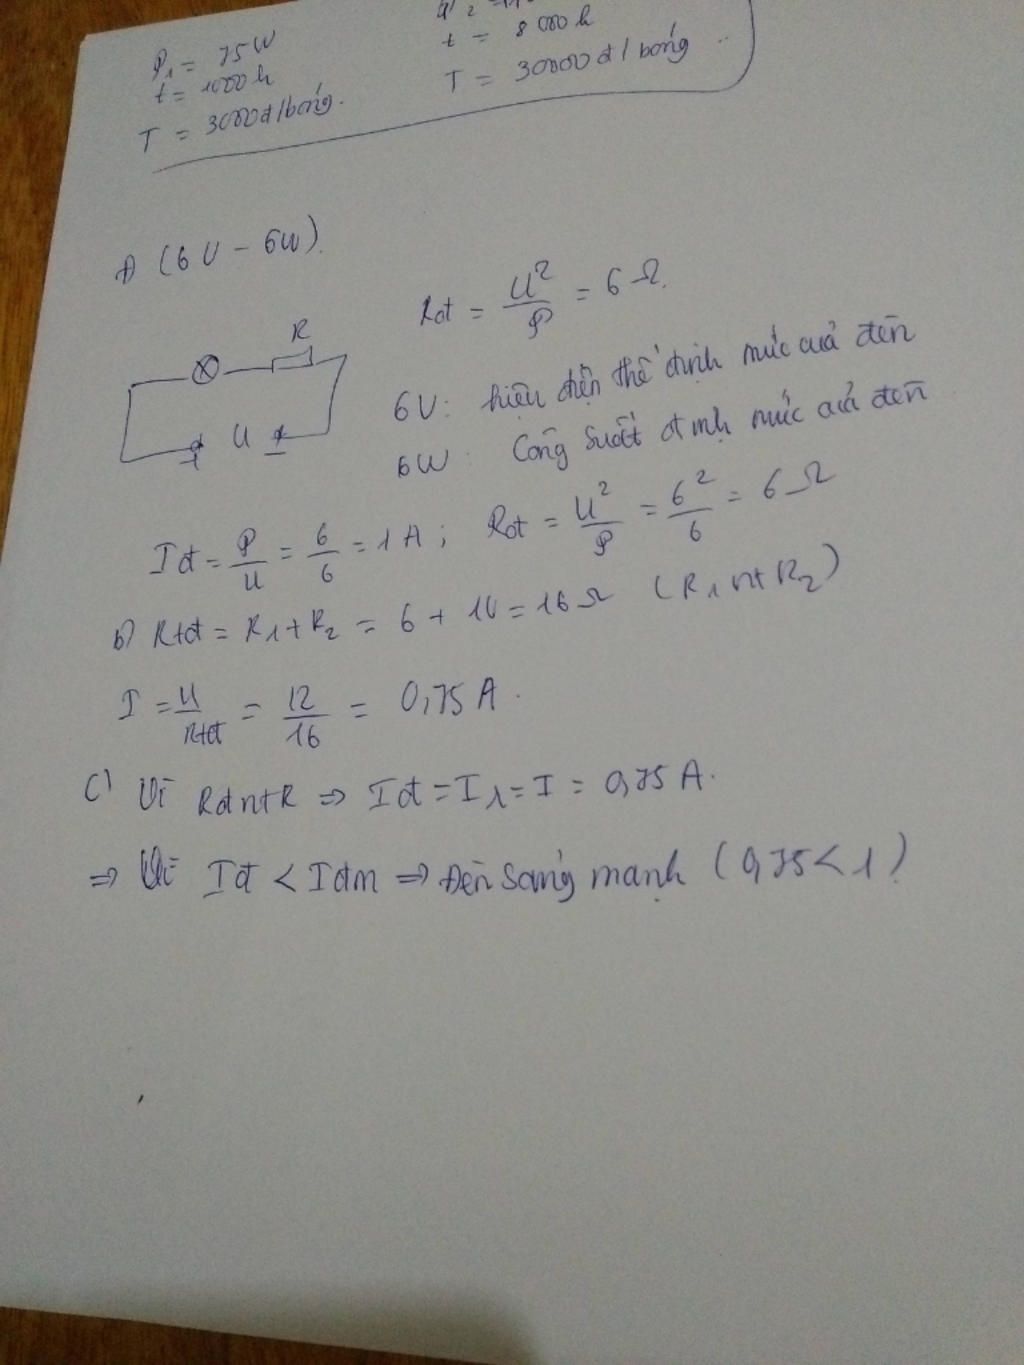 P1 = 75W
t = 1000 h
T = 3000đ/bóng.
t = 8000 h
T = 30000đ/bóng
a) (6V - 6W).
Rđ = U²/P = 6Ω.
R
U
+ -
6V: hiệu điện thế định mức của đèn
6W: Công suất định mức của đèn
Iđ = P/U = 6/6 = 1A; Rđ = U²/P = 6²/6 = 6Ω
b) Rtđ = R1 + R2 = 6 + 10 = 16Ω (R1 nt R2)
I = U/Rtđ = 12/16 = 0,75A.
c) Vì Rđ nt R => Iđ = I1 = I = 0,75A.
=> Vì Iđ < Iđm => Đèn sáng mạnh (0,75 < 1)